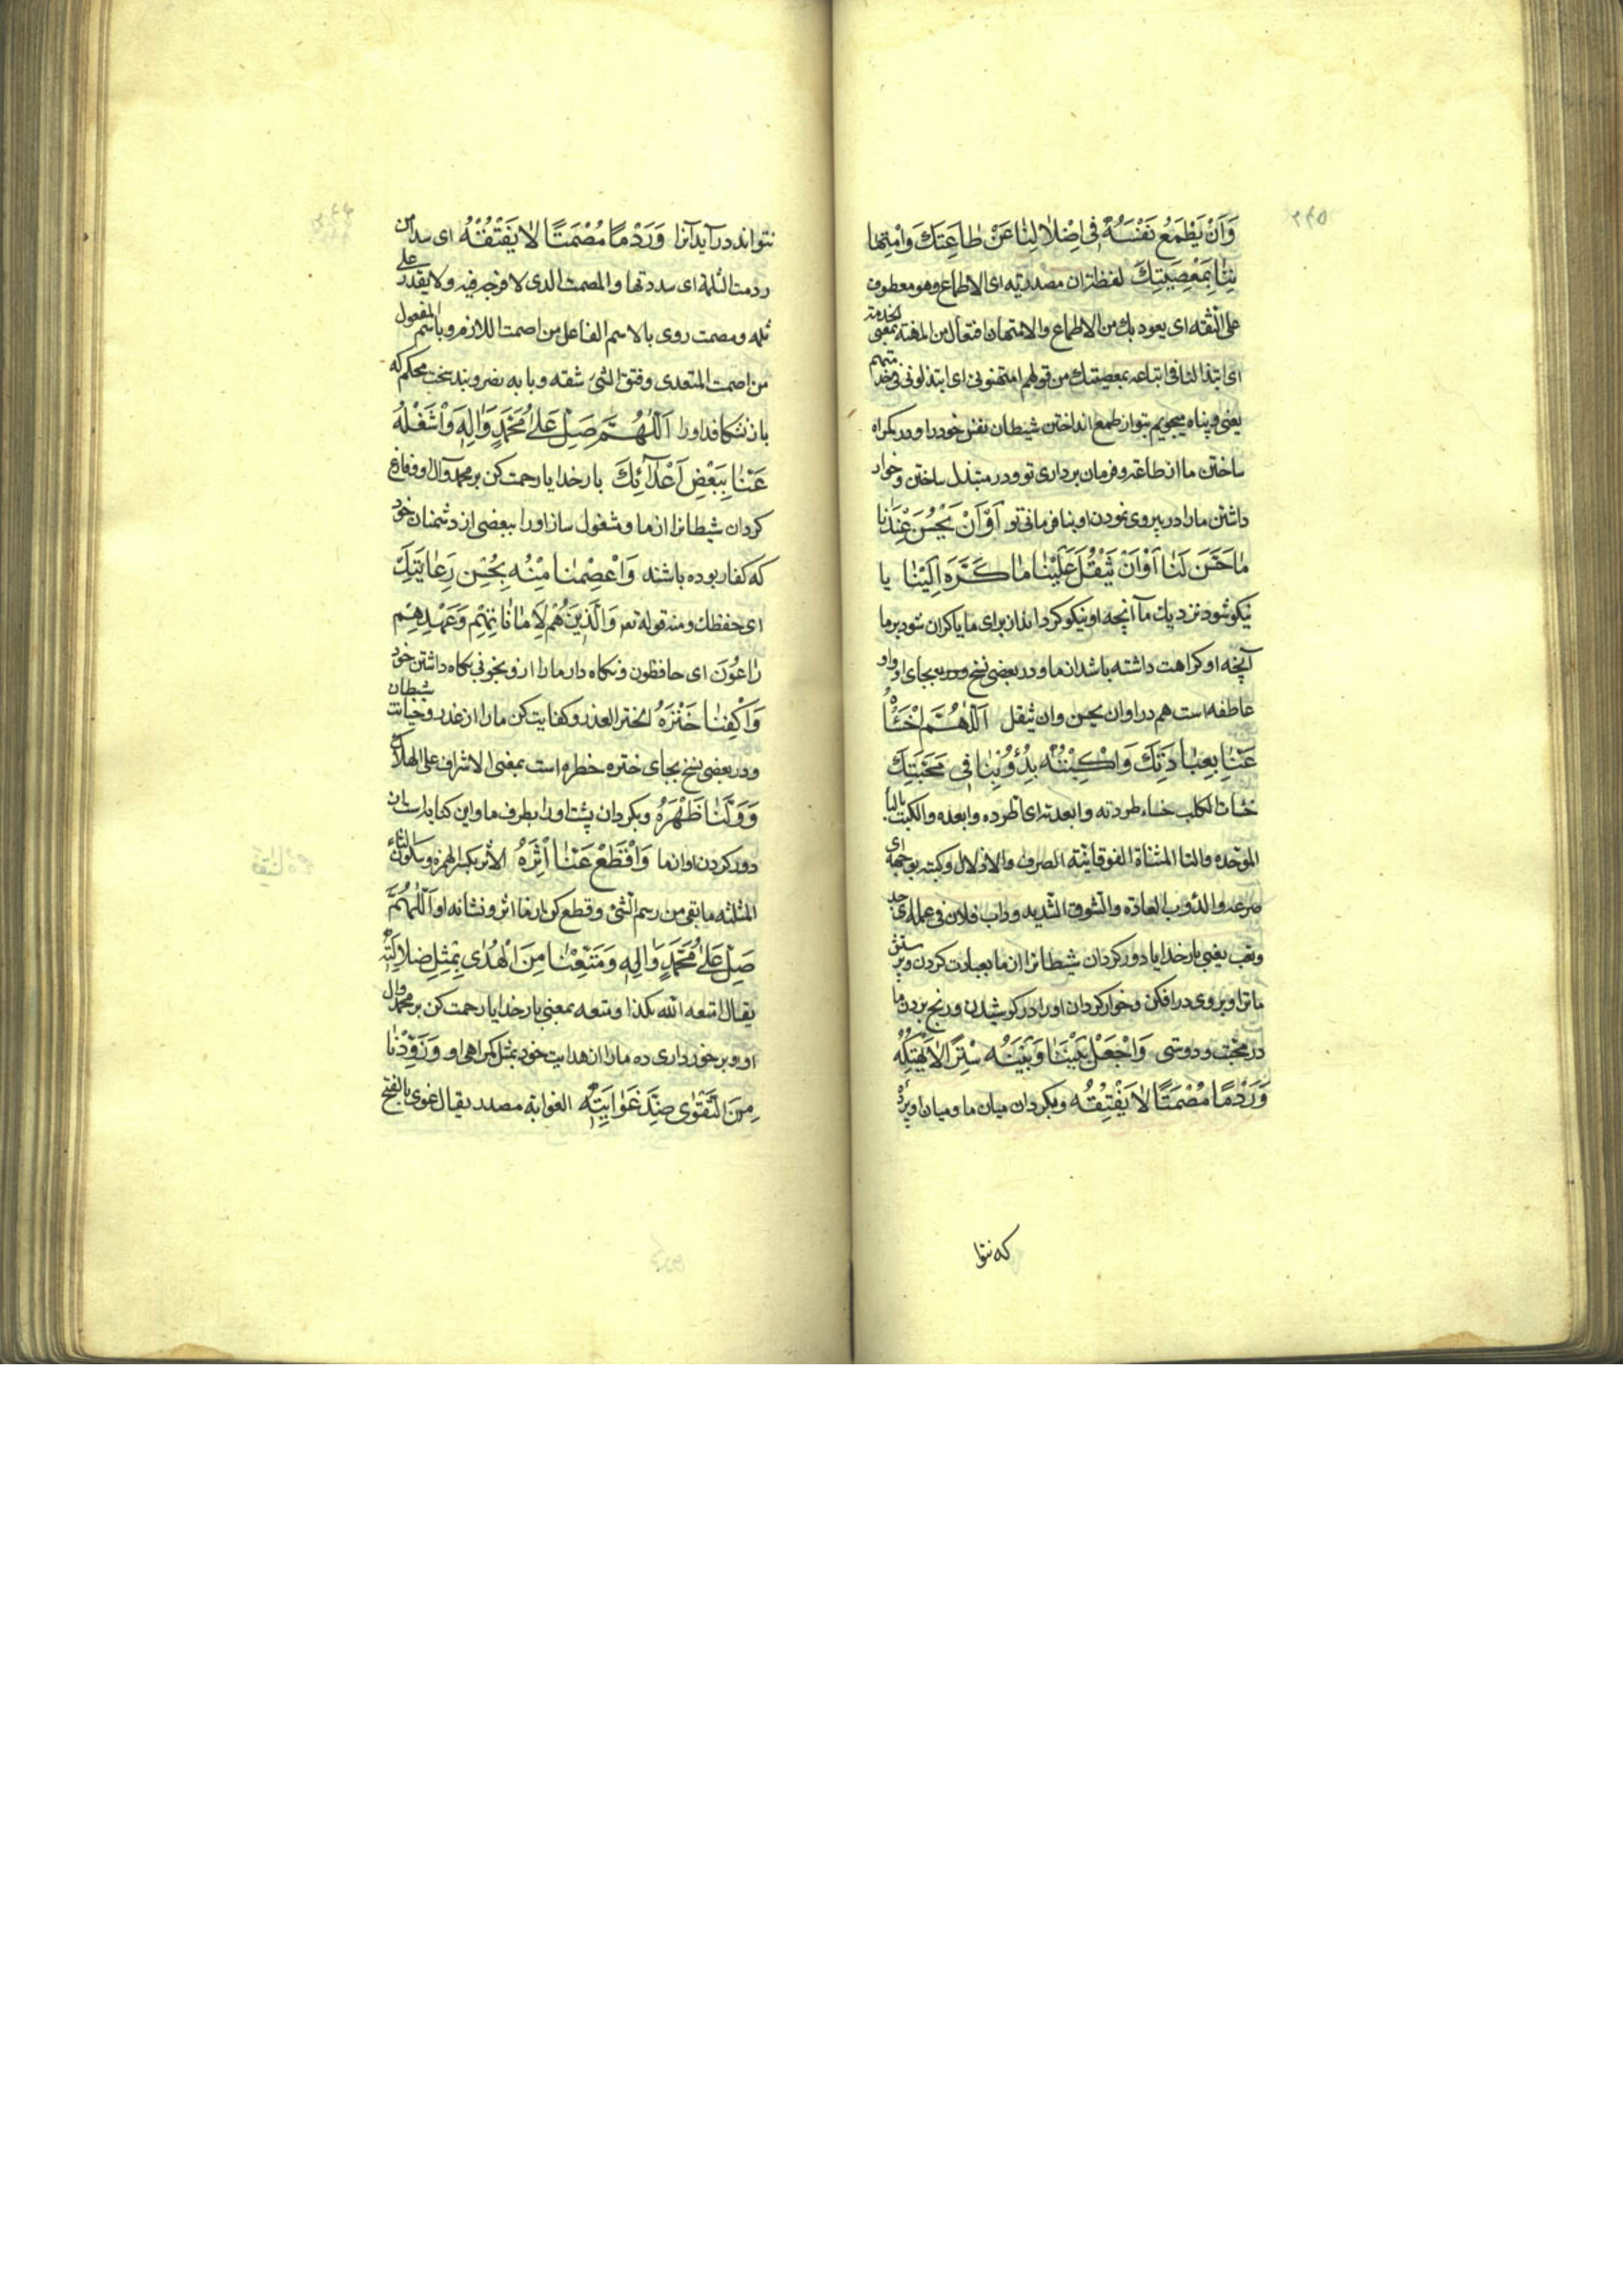 وَاَنْ يُطْمِعَ نَفْسَهُ فِى اِضْلَالِنَا عَنْ طَاعَتِكَ وَامْتِهَا
نِنَا بِمَعْصِيَتِكَ لفظة ان مصدرية اى الاطماع وهو معطوف
على الثقة اى يعود بك من الاطماع والامتهان افتعال من المهنة بمعنى الخدمة
اى ابتذالنا فى اتباعه بمعصيتك من قولهم امتهنونى اى ابتذلونى فى خدمتهم
يعنى و پناه ميجويم بتو از طمع انداختن شيطان نفس خود را و در گمراه
ساختن ما از طاعة و فرمان بردارى تو و در مبتذل ساختن و خوار
داشتن ما را در پيروى نمودن او بنا فرمانى تو اَوْ اَنْ يَحْسُنَ عِنْدَنَا
مَا حَسَّنَ لَنَا اَوْ اَنْ يَثْقُلَ عَلَيْنَا مَا كَرَّهَ اِلَيْنَا يا
نيكو شود نزديك ما آنچه او نيكو گردانداز براى ما يا گران شود بر ما
آنچه او كراهت داشته باشد از ما و در بعضى نسخ بجاى او واو
عاطفه است هم در او ان يحسن وان يثقل اَللّٰهُمَّ اخْسَأْهُ
عَنَّا بِعِبَادَتِكَ وَاكْبِتْهُ بِدُؤُوبِنَا فِى مَحَبَّتِكَ
خسات الكلب خساء طردته وابعدته اى اطرده وابعده والكبت بالبا
الموحده والتا المثناة الفوقانية الصرف والاذلال وكبته بوجهه اى
صرعه والدؤوب العادة والشوق الشديد وداب فلان فى عمله اى جد
وتعب يعنى بار خدايا دور گردان شيطانرا از ما بعبادت كردن و پرستش
ما ترا و بروى در افكن و خوار گردان او را در كوشيدن و رنج بردن ما
در محبت و دوستى وَاجْعَلْ بَيْنَنَا وَبَيْنَهُ سِتْرًا لَا يَهْتِكُهُ
وَرَدْمًا مُصْمَتًا لَا يَفْتِقُهُ و بگردان ميان ما و ميان او پردۀ
كه نتوا
نتواند در آيد آنرا وَرَدْمًا مُصْمَتًا لَا يَفْتُقْهُ اى سد من
ردمت الثلمة اى سددتها والمصمت الذى لا فرجه فيه ولا يقدر على
ثلمه ومصمت روى بالاسم الفاعل من اصمت اللازم وباسم المفعول
من اصمت المتعدى وفتق الشئ شقه وبابه نصر و بند سخت محكم كه
باز نشكافد او را اَللّٰهُمَّ صَلِّ عَلىٰ مُحَمَّدٍ وَاٰلِهِ وَاشْغَلْهُ
عَنَّا بِبَعْضِ اَعْدَآئِكَ بار خدايا رحمت كن بر محمد وآل او و فارغ
گردان شيطانرا از ما و مشغول ساز او را ببعضى از دشمنان خود
كه كفار بوده باشند وَاعْصِمْنَا مِنْهُ بِحُسْنِ رِعَايَتِكَ
اى حفظك ومنه قوله تعر وَالَّذِينَ هُمْ لِاَمَانَاتِهِمْ وَعَهْدِهِمْ
رَاعُوْنَ اى حافظون و نگاه دار ما را از و بخوبى نگاه داشتن خود
وَاكْفِنَا خَتْرَهُ الختر الغدر و كفايت كن ما را از غدر و خيانت شيطان
و در بعضى نسخ بجاى ختره خطره است بمعنى الاشراف على الهلاك
وَوَلِّنَا ظَهْرَهُ و بگردان پشت او را بطرف ما و اين كنايه است از
دور كردن او از ما وَاقْطَعْ عَنَّا اِثْرَهُ الاثر بكسر الهمزه و سكون الثاء
المثلثه ما بقى من رسم الشئ و قطع كن از ما اثر و نشانه او اَللّٰهُمَّ
صَلِّ عَلىٰ مُحَمَّدٍ وَاٰلِهِ وَمَتِّعْنَا مِنَ الْهُدٰى بِمِثْلِ ضَلَالَتِهِ
يقال امتعه الله بكذا ومتعه بمعنى بار خدايا رحمت كن بر محمد وال
او و بر خوردارى ده ما را از هدايت خود بمثل گمراهى او وَزَوِّدْنَا
مِنَ التَّقْوٰى ضِدَّ غَوَايَتِهِ الغواية مصدر يقال غوى بالفتح